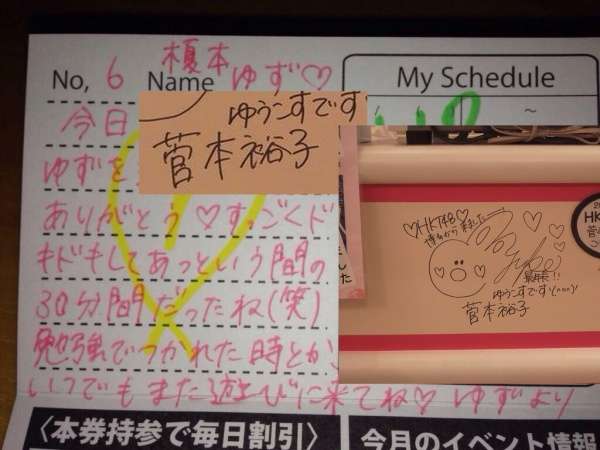 榎本
No, 6 Name ゆず♡
My Schedule
~
今日
ゆずを
ゆうこすです
菅本裕子
ありがとう♡すっごくド
キドキしてあっという間の
30分間だったね(笑)
勉強でつかれた時とか、
いつでもまた遊びに来てね♡ ゆずより
♡HKT48♡
博多から来ました
最高!!
ゆうこすです\(^o^)/
菅本裕子
HK
菅
〈本券持参で毎日割引〉
今月のイベント情報